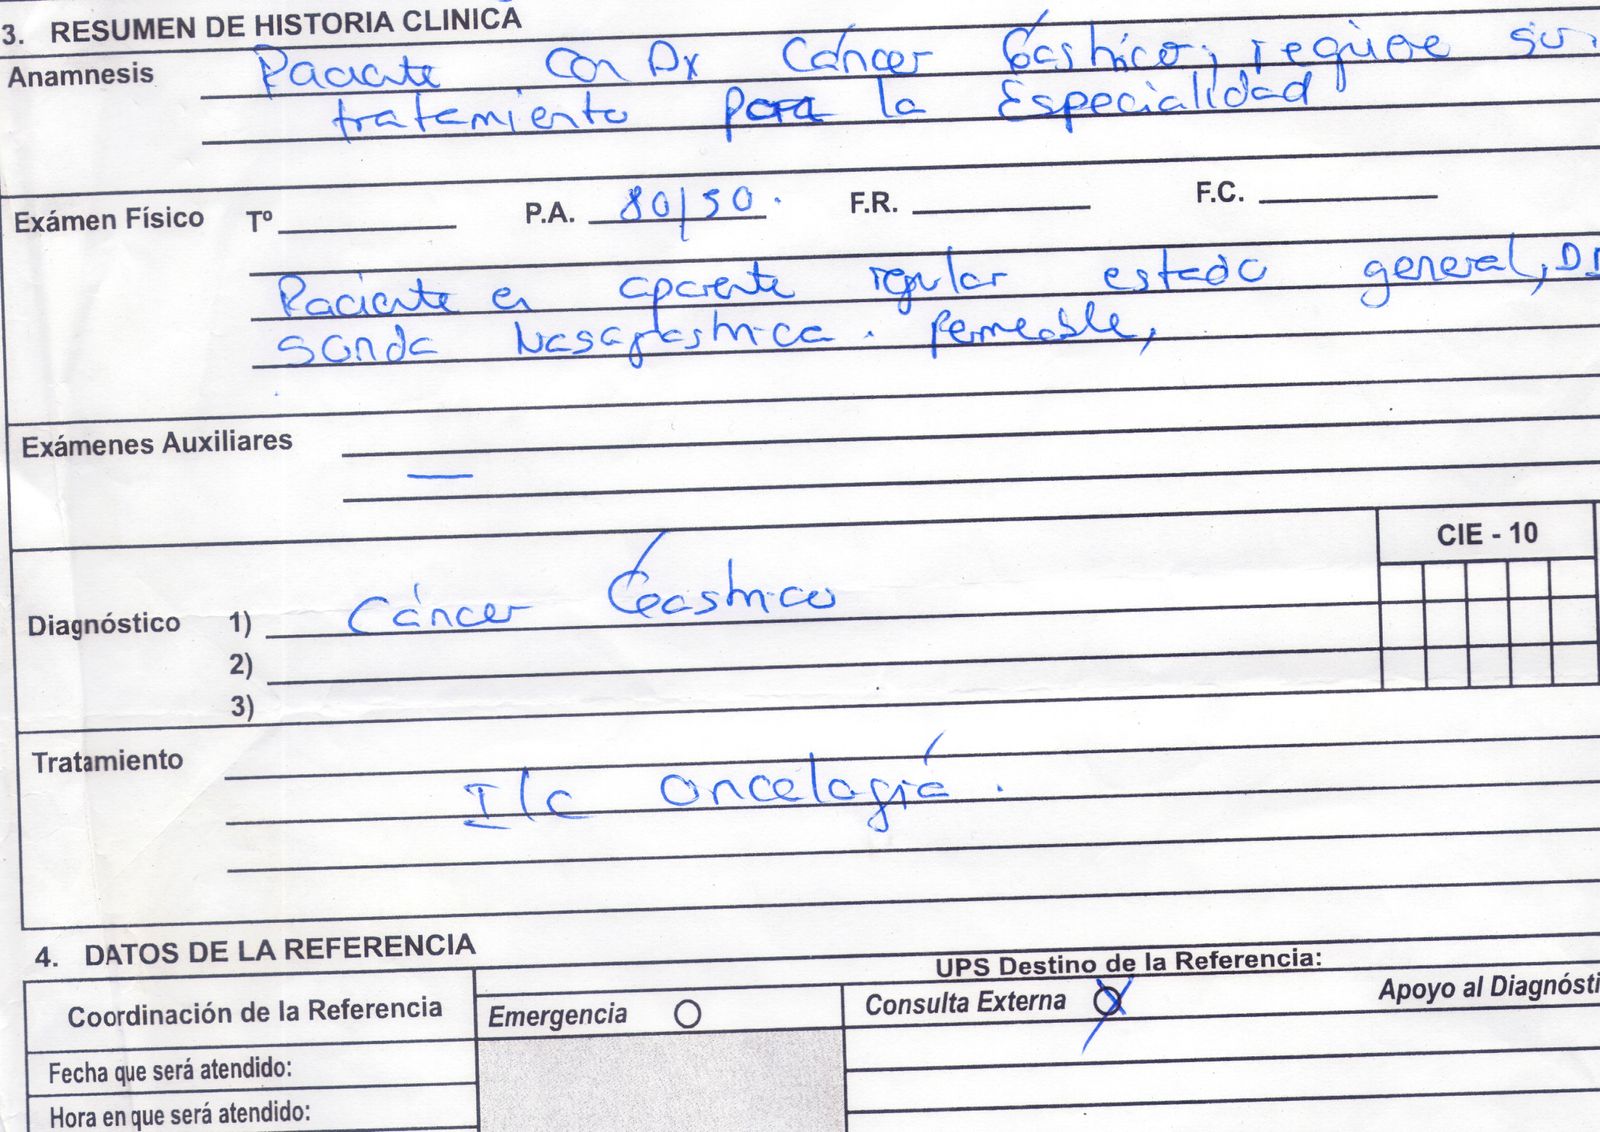 3. RESUMEN DE HISTORIA CLINICA
Anamnesis Paciente con Dx Cáncer Gástrico, requiere su
tratamiento para la Especialidad
Exámen Físico Tº P.A. 80/50. F.R. F.C.
Paciente en aparente regular estado general,
sonda Nasogástrica. Permeable,
Exámenes Auxiliares
—
CIE - 10
Diagnóstico 1) Cáncer Gástrico
2)
3)
Tratamiento
I/C Oncología.
4. DATOS DE LA REFERENCIA
UPS Destino de la Referencia:
Coordinación de la Referencia Emergencia Consulta Externa X Apoyo al Diagnósti
Fecha que será atendido:
Hora en que será atendido: